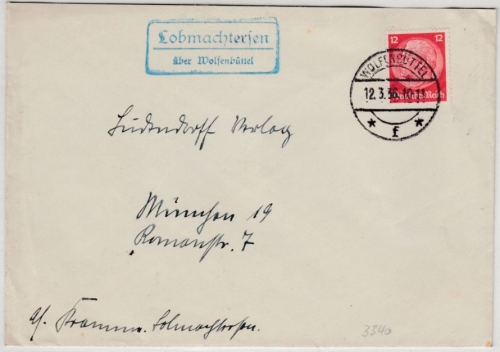 Lobmachtersen
über Wolfenbüttel
12 12
Deutsches Reich
WOLFENBÜTTEL
12.3.36.10-11
* f *
Ludendorff Verlag
München 19
Romanstr. 7
Lobmachtersen.
334a